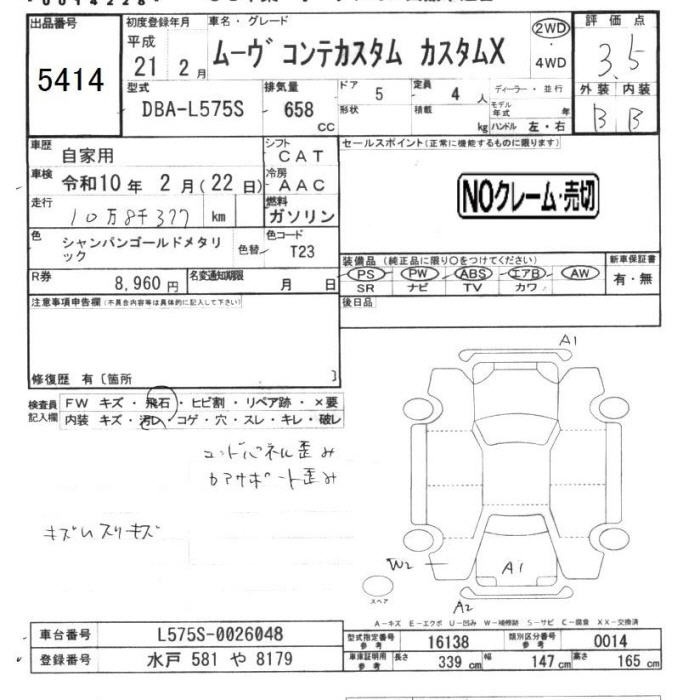 出品番号
5414
初度登録年月
平成
21 2月
車名・グレード
ムーヴ コンテカスタム カスタムX
2WD
・
4WD
評価点
3.5
型式
DBA-L575S
排気量
658
cc
ドア
5
形状
定員
4 人
積載
kg
ディーラー・並行
モデル年式 年
ハンドル 左・右
外装 内装
B B
車歴
自家用
シフト
CAT
車検
令和10年 2月(22日)
冷房
AAC
走行
10万8千377 km
燃料
ガソリン
色
シャンパンゴールドメタリ
ック
色替
色コード
T23
R券
8,960円
名変通知期限
月 日
セールスポイント(正常に機能するものに限ります)
NOクレーム・売切
装備品(純正品に限り〇をつけてください)
PS PW ABS エアB AW
SR ナビ TV カワ
新車保証書
有・無
後日品
注意事項申告欄(不具合内容等は具体的に記入して下さい)
修復歴 有〔箇所 〕
検査員
記入欄
FW キズ・飛石・ヒビ割・リペア跡・×要
内装 キズ・汚レ・コゲ・穴・スレ・キレ・破レ
コアサポート歪み
キズ スリキズ
A1
W2
A1
A2
スペア
A-キズ E-エクボ U-凹み W-補修跡 S-サビ C-腐食 XX-交換済
車台番号
L575S-0026048
登録番号
水戸 581 や 8179
型式指定番号
参考
16138
類別区分番号
参考
0014
車庫証明用
参考
長さ 339 cm 幅 147 cm 高さ 165 cm